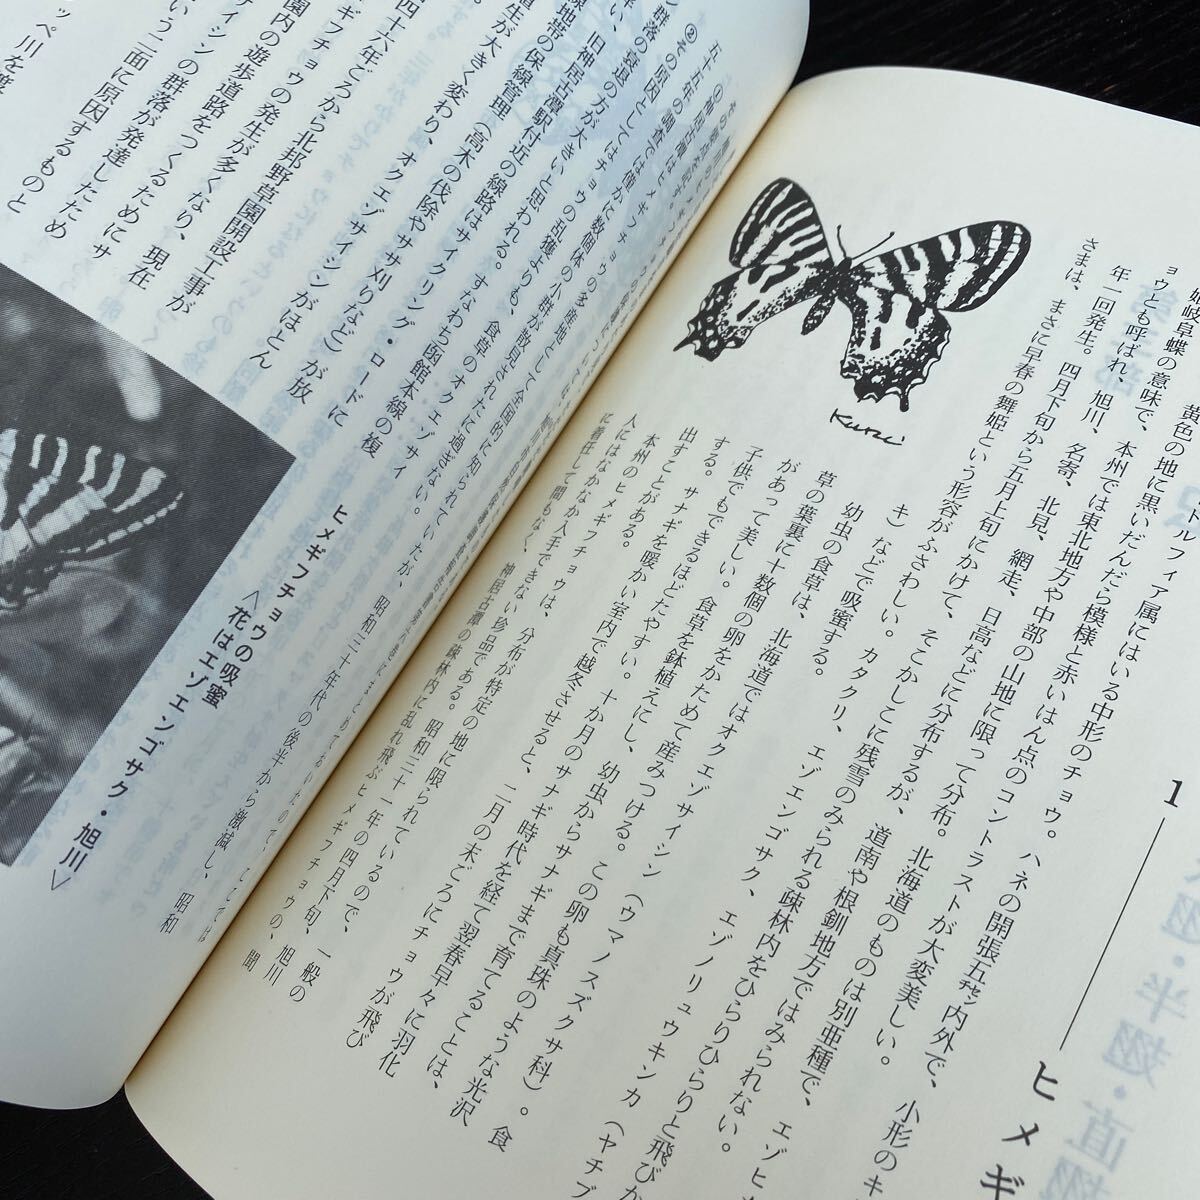 1 ―― ヒメギ
黄色の地に黒いだんだら模様と赤いはん点のコントラストが大変美しい。小形のギ
ドルフィア属にはいる中形のチョウ。ハネの開張五㌢内外で、
姫岐阜蝶の意味で、本州では東北地方や中部の山地に限って分布。北海道のものは別亜種で、エゾヒ
ョウとも呼ばれ、旭川、名寄、北見、網走、日高などに分布するが、道南や根釧地方ではみられない。
年一回発生。四月下旬から五月上旬にかけて、そこかしこに残雪のみられる疎林内をひらりひらりと飛びか
さまは、まさに早春の舞姫という形容がふさわしい。カタクリ、エゾエンゴサク、エゾノリュウキンカ（ヤチブ
キ）などで吸蜜する。
幼虫の食草は、北海道ではオクエゾサイシン（ウマノスズクサ科）。食
草の葉裏に十数個の卵をかためて産みつける。この卵も真珠のような光沢
があって美しい。食草を鉢植えにし、幼虫からサナギまで育てることは、
子供でもできるほどたやすい。十か月のサナギ時代を経て翌春早々に羽化
する。サナギを暖かい室内で越冬させると、二月の末ごろにチョウが飛び
出すことがある。
本州のヒメギフチョウは、分布が特定の地に限られているので、一般の
人にはなかなか入手できない珍品である。昭和三十一年の四月下旬、旭川
に着任して間もなく、神居古潭の疎林内に乱れ飛ぶヒメギフチョウの、聞
Kuri
①神居古潭はヒメギフチョウの多産地として全国的に知られていたが、昭和三十年代の後半から激減し、昭和
五十五年の調査では僅かに数個体の小群が散見されたに過ぎない。
②その原因としてはチョウの乱獲よりも、食草のオクエゾサイシ
ン群落の衰退の方が大きいと思われる。すなわち函館本線の複
い、旧神居古潭駅付近の線路はサイクリング・ロードに
線地帯の保線管理（高木の伐除やササ刈りなど）が放
生が大きく変わり、オクエゾサイシンがほとん
四十六年ごろから北邦野草園開設工事が
ギフチョウの発生が多くなり、現在
園内の遊歩道路をつくるためにサ
サイシンの群落が発達したため
いう二面に原因するものと
ッペ川を渡
ヒメギフチョウの吸蜜
〈花はエゾエンゴサク・旭川〉